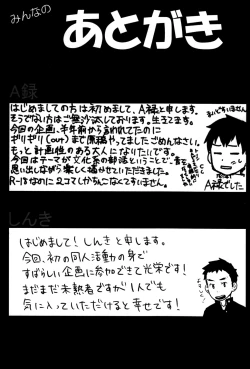 みんなの
あとがき
A録
はじめましての方は初めまして、A禄と申します。
そうでない方はご無沙汰しております。生きてます。
今回の企画、半年前から言われてたのに
ギリギリ(out)まで原稿やってましたごめんなさい。
もっと計画性のある大人になりたいです。
今回はテーマが文化系の部活ということで、昔を
思い出しながら楽しく描かせていただきました。
R-18なのに2コマしかちんこなくてすいません。
A禄でした
しんき
はじめまして!しんきと申します。
今回、初の同人活動の身で
すばらしい企画に参加できて光栄です!
まだまだ未熟者ですが1人でも
気に入っていただけると幸せです!